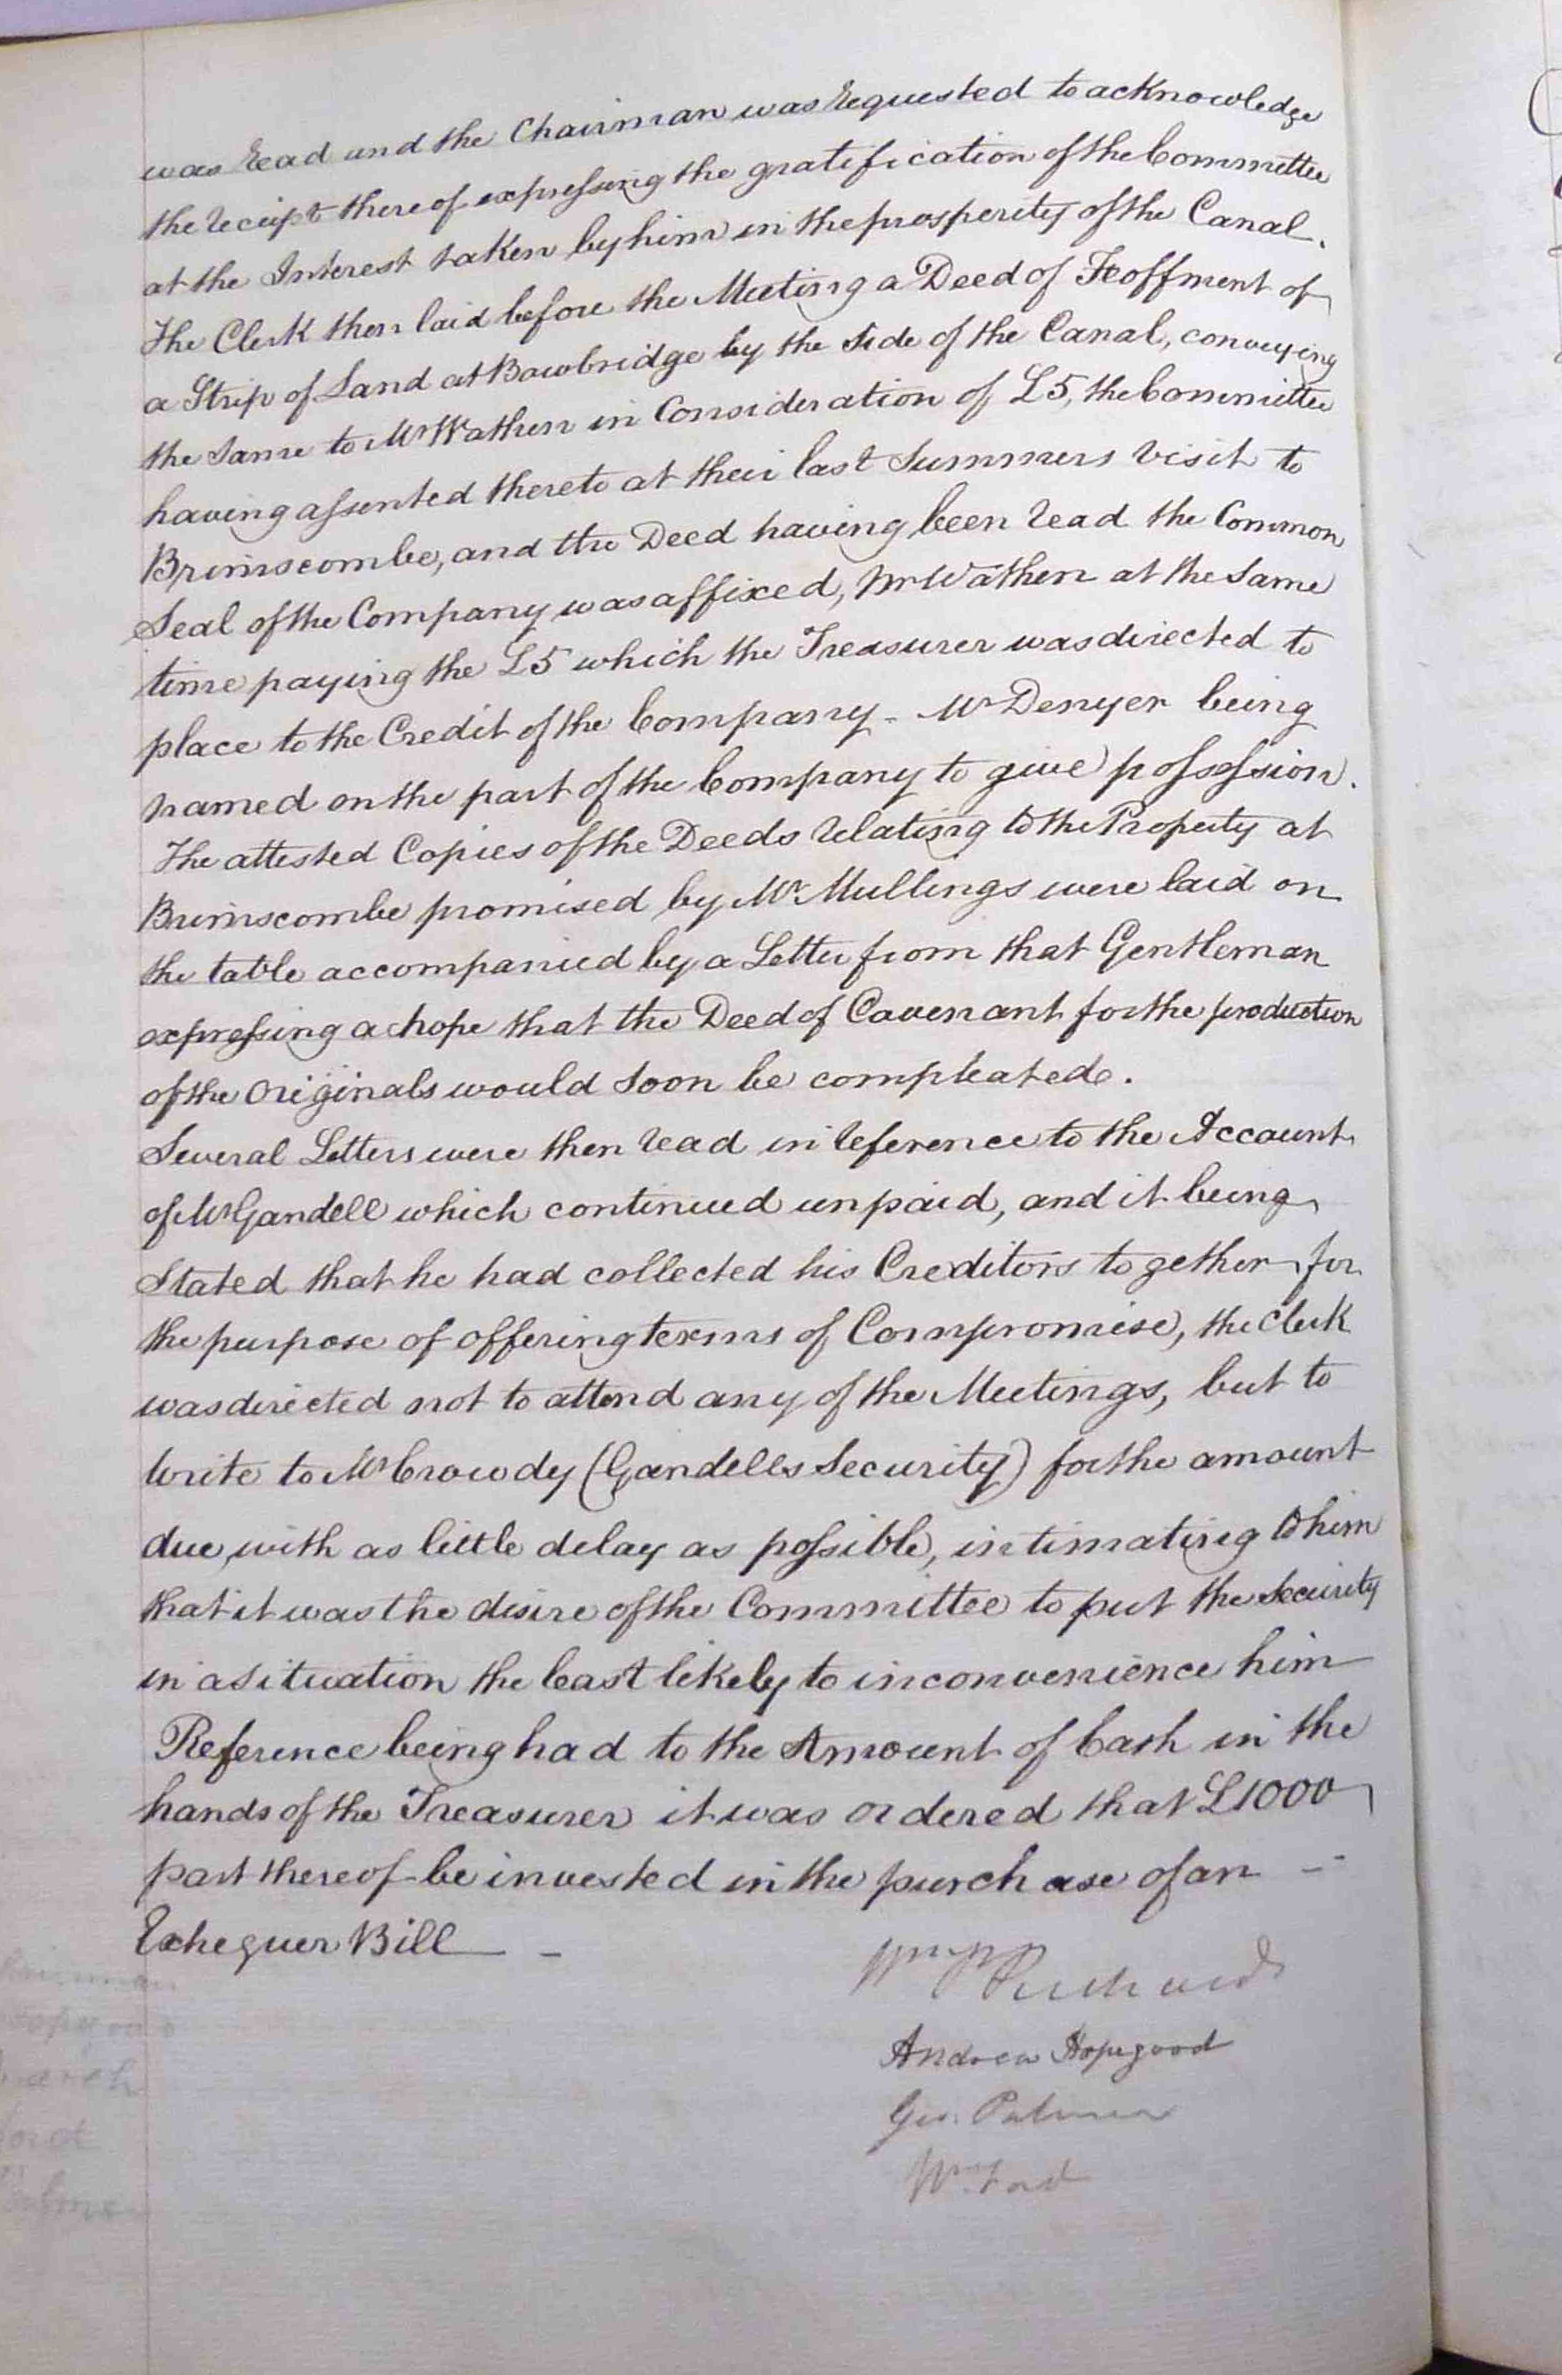 was read and the Chairman was requested to acknowledge
the receipt thereof expressing the gratification of the Committee
at the Interest taken by him in the prosperity of the Canal.
The Clerk then laid before the Meeting a Deed of Feoffment of
a Strip of Land at Bowbridge by the side of the Canal, conveying
the same to Mr Wathen in Consideration of £5, the Committee
having assented thereto at their last Summers visit to
Brimscombe, and the Deed having been read the Common
Seal of the Company was affixed, Mr Wathen at the same
time paying the £5 which the Treasurer was directed to
place to the Credit of the Company - Mr Denyer being
named on the part of the Company to give possession.
The attested Copies of the Deeds relating to the Property at
Brimscombe promised by Mr Mullings were laid on
the table accompanied by a Letter from that Gentleman
expressing a hope that the Deed of Covenant for the production
of the Originals would soon be compleated.
Several Letters were then read in reference to the Account
of Mr Gandell which continued unpaid, and it being
Stated that he had collected his Creditors together for
the purpose of offering terms of Compromise, the Clerk
was directed not to attend any of the Meetings, but to
write to Mr Crowdy (Gandells Security) for the amount
due with as little delay as possible, intimating to him
that it was the desire of the Committee to put the Security
in a situation the least likely to inconvenience him
Reference being had to the Amount of Cash in the
hands of the Treasurer it was ordered that £1000
part thereof be invested in the purchase of an -
Exchequer Bill -
Wm Richards
Andrew Hopegood
Geo. Palmer
Wm Ford